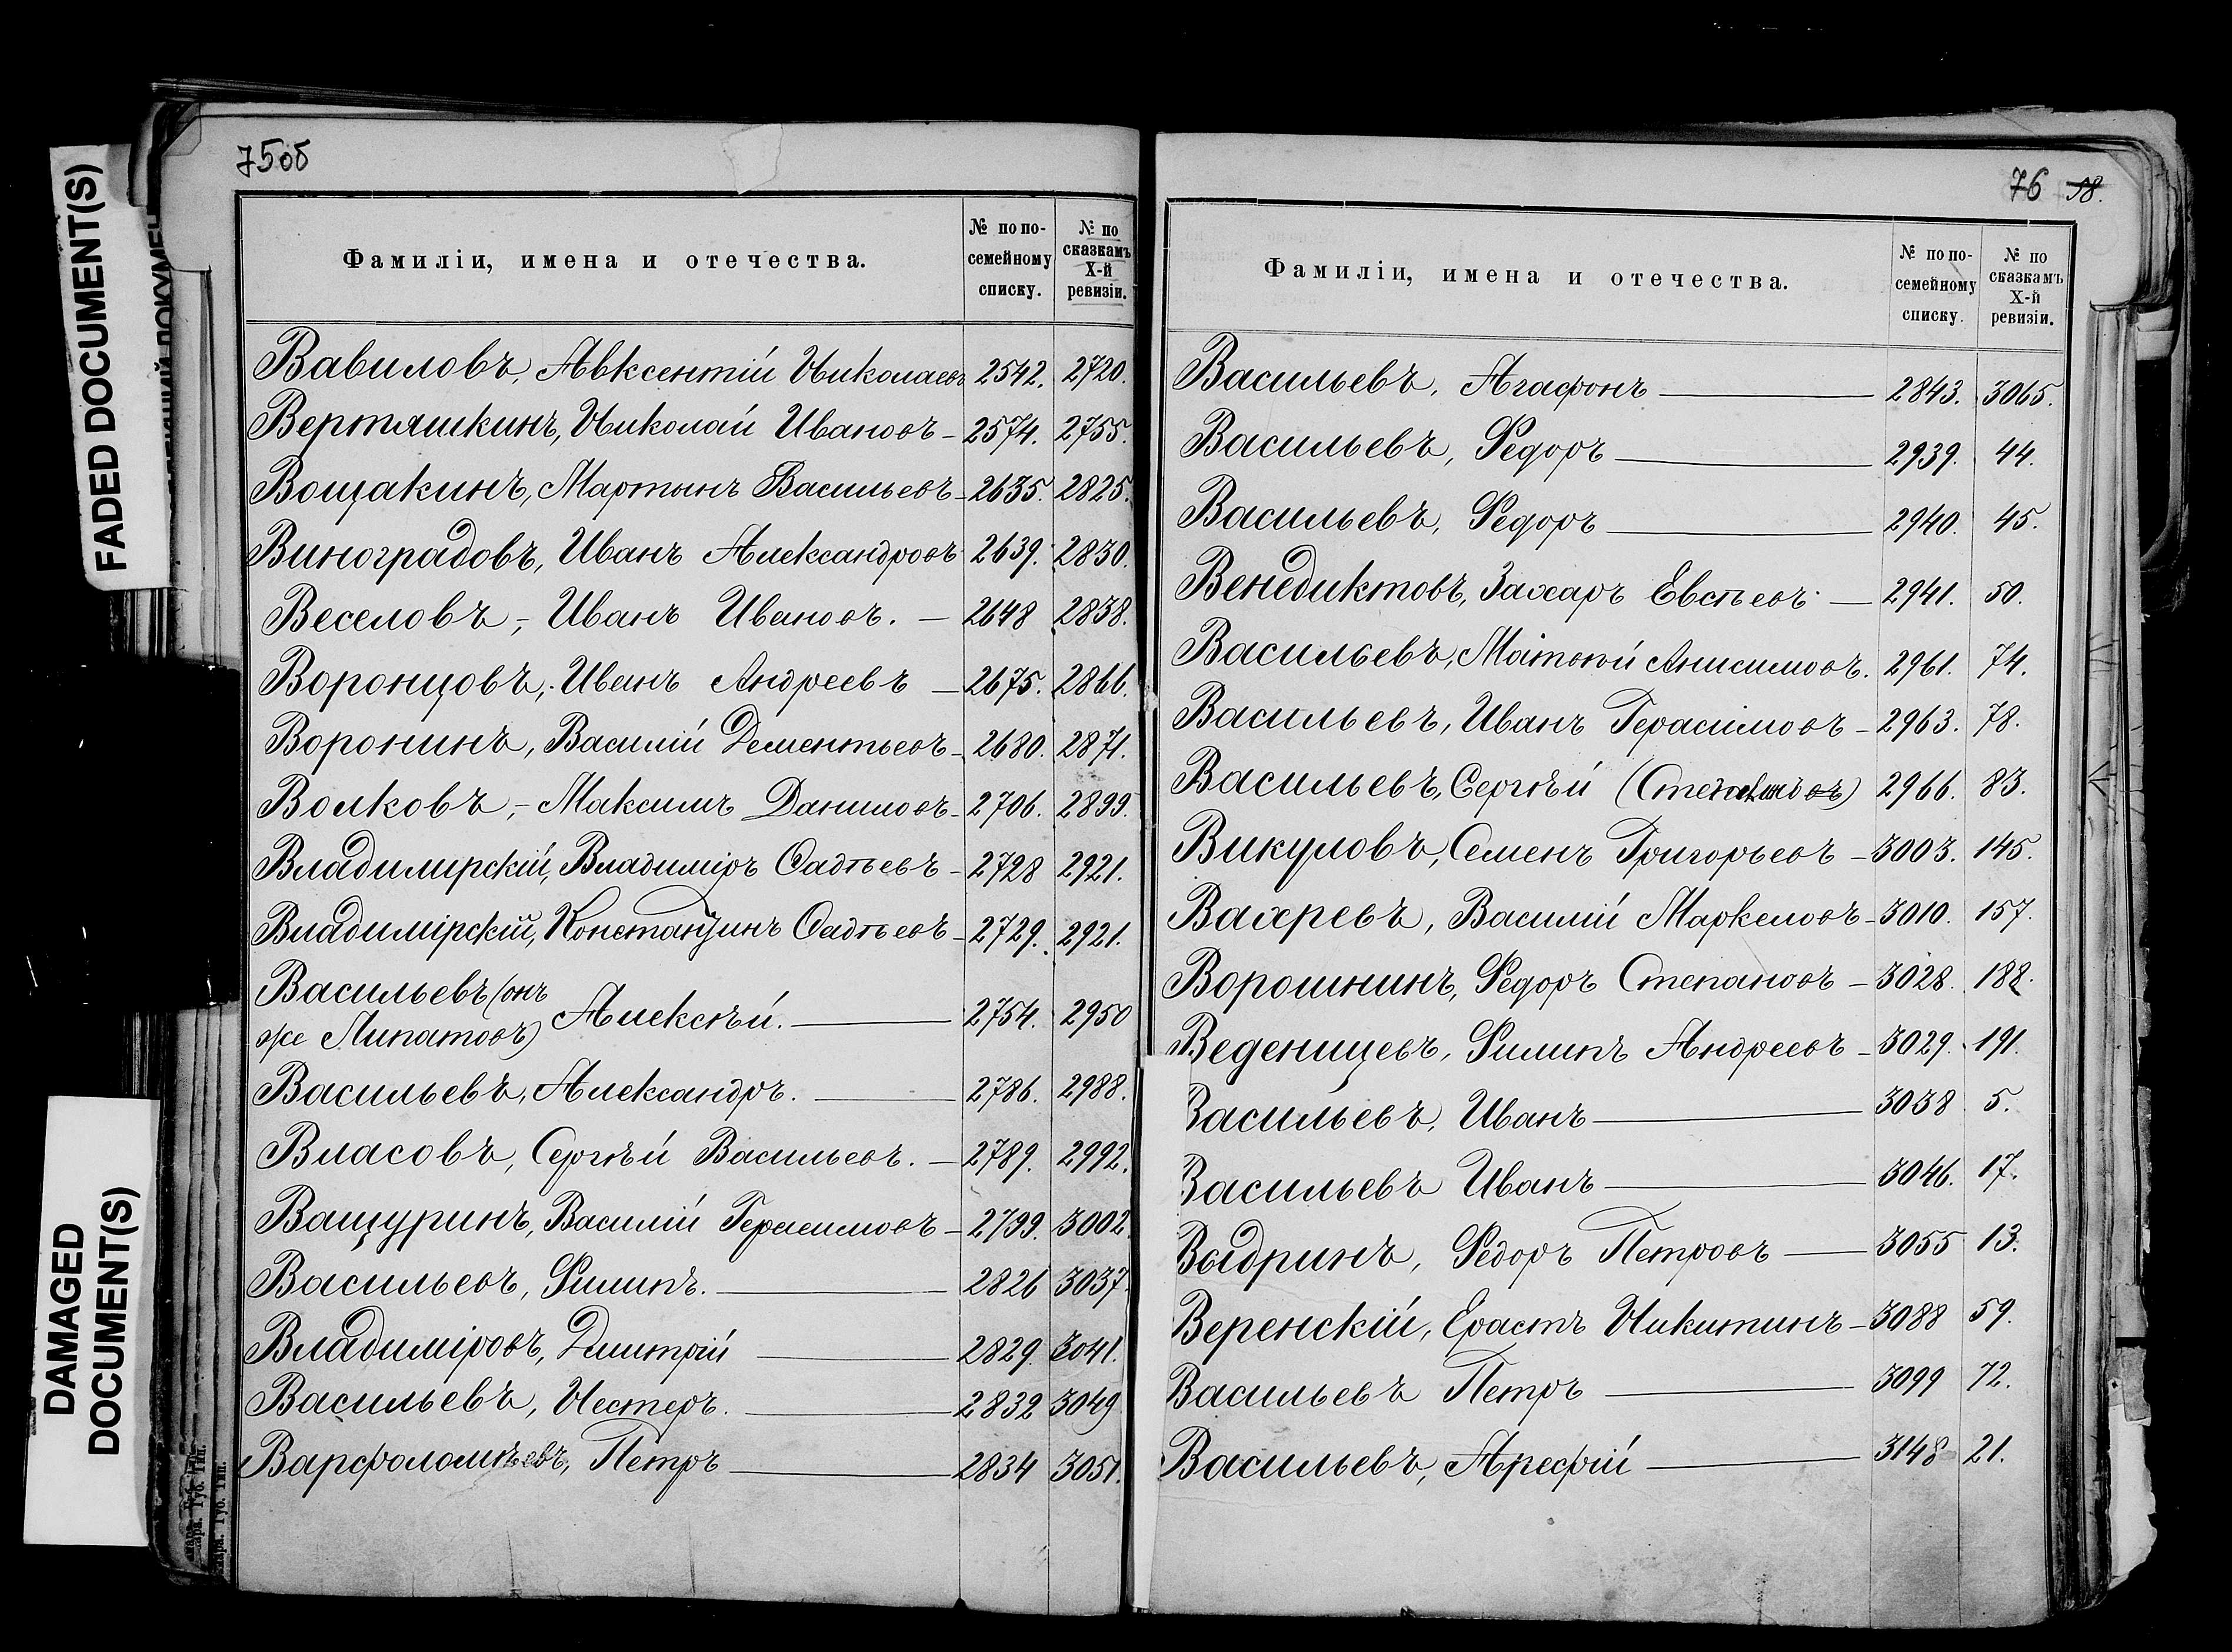 75об
Фамиліи, имена и отечества.
№ по по-
семейному
списку.
№ по
сказкамъ
X-й
ревизіи.
Вавиловъ, Авксентій Николаевъ 2542. 2720.
Вертяшкинъ, Николай Ивановъ – 2574. 2755.
Вощакинъ, Мартынъ Васильевъ – 2635. 2825.
Виноградовъ, Иванъ Александровъ 2639. 2830.
Веселовъ, – Иванъ Ивановъ. – 2648 2838.
Воронцовъ, Иванъ Андреевъ – 2675. 2866.
Воронинъ, Василій Дементьевъ – 2680. 2871.
Волковъ, – Максимъ Даниловъ – 2706. 2899.
Владимирскій, Владиміръ Фадѣевъ – 2728 2921.
Владимірскій, Константинъ Фадѣевъ – 2729. 2921.
Васильевъ (онъ
же Липатовъ) Алексѣй. — 2754. 2950
Васильевъ, Александръ. — 2786. 2988.
Власовъ, Сергѣй Васильевъ. – 2789. 2992.
Ващуринъ, Василій Герасимовъ – 2799. 3002.
Васильевъ, Филипъ. — 2826 3037.
Владиміровъ, Дмитрій — 2829. 3041.
Васильевъ, Нестеръ. — 2832 3049
Варфоломѣевъ, Петръ — 2834 3051.
76 58.
Фамиліи, имена и отечества.
№ по по-
семейному
списку.
№ по
сказкамъ
X-й
ревизіи.
Васильевъ, Агафонъ — 2843. 3065.
Васильевъ, Федоръ — 2939. 44.
Васильевъ, Федоръ — 2940. 45.
Венедиктовъ, Захаръ Евсѣевъ – 2941. 50.
Васильевъ, Матвѣй Анисимовъ. 2961. 74.
Васильевъ, Иванъ Герасимовъ – 2963. 78.
Васильевъ, Сергѣй 2966. 83.
Викуловъ, Семенъ Григорьевъ – 3003. 145.
Вахревъ, Василій Маркеловъ – 3010. 157.
Ворошнинъ, Федоръ Степановъ – 3028. 188.
Веденицевъ, Филипъ Андреевъ – 3029. 191.
Васильевъ, Иванъ — 3038 5.
Васильевъ Иванъ — 3046. 17.
Выдринъ, Федоръ Петровъ — 3055 13.
Веренскій, Ерастъ Никитинъ – 3088 59.
Васильевъ Петръ — 3099 72.
Васильевъ, Арефій — 3148 21.
FADED DOCUMENT(S)
DAMAGED
DOCUMENT(S)